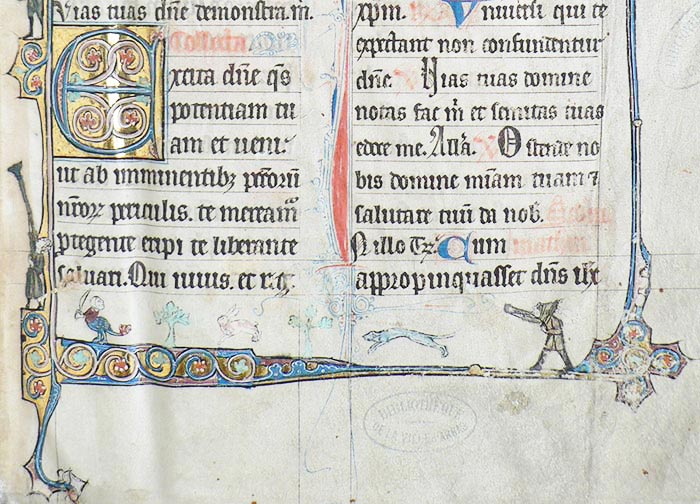 Vias tuas dñe demonstra.m.
Collecta
Excita dñe q̄s
potentiam tu
am et veni.
ut ab imminentibꝫ pctoꝝ
nr̄oꝝ periculis. te meream᷑
ꝓtegente eripi te liberante
saluari. Qui viuis. et r. g̃.
xpm. Vniuersi qui te
expectant non confundentur
dñe. Vias tuas domine
notas fac m̄ et semitas tuas
edoce me. All̄a. Ostende no
bis domine mīam tuam ⁊
salutare tuū da nob̄.
N illo Tꝫ. Cum
appropinquasset dñs
BIBLIOTHEQUE
DE LA VILLE D'ARRAS